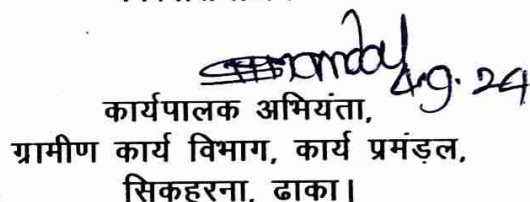 4.9.24
कार्यपालक अभियंता,
ग्रामीण कार्य विभाग, कार्य प्रमंड़ल,
सिकहरना, ढाका।